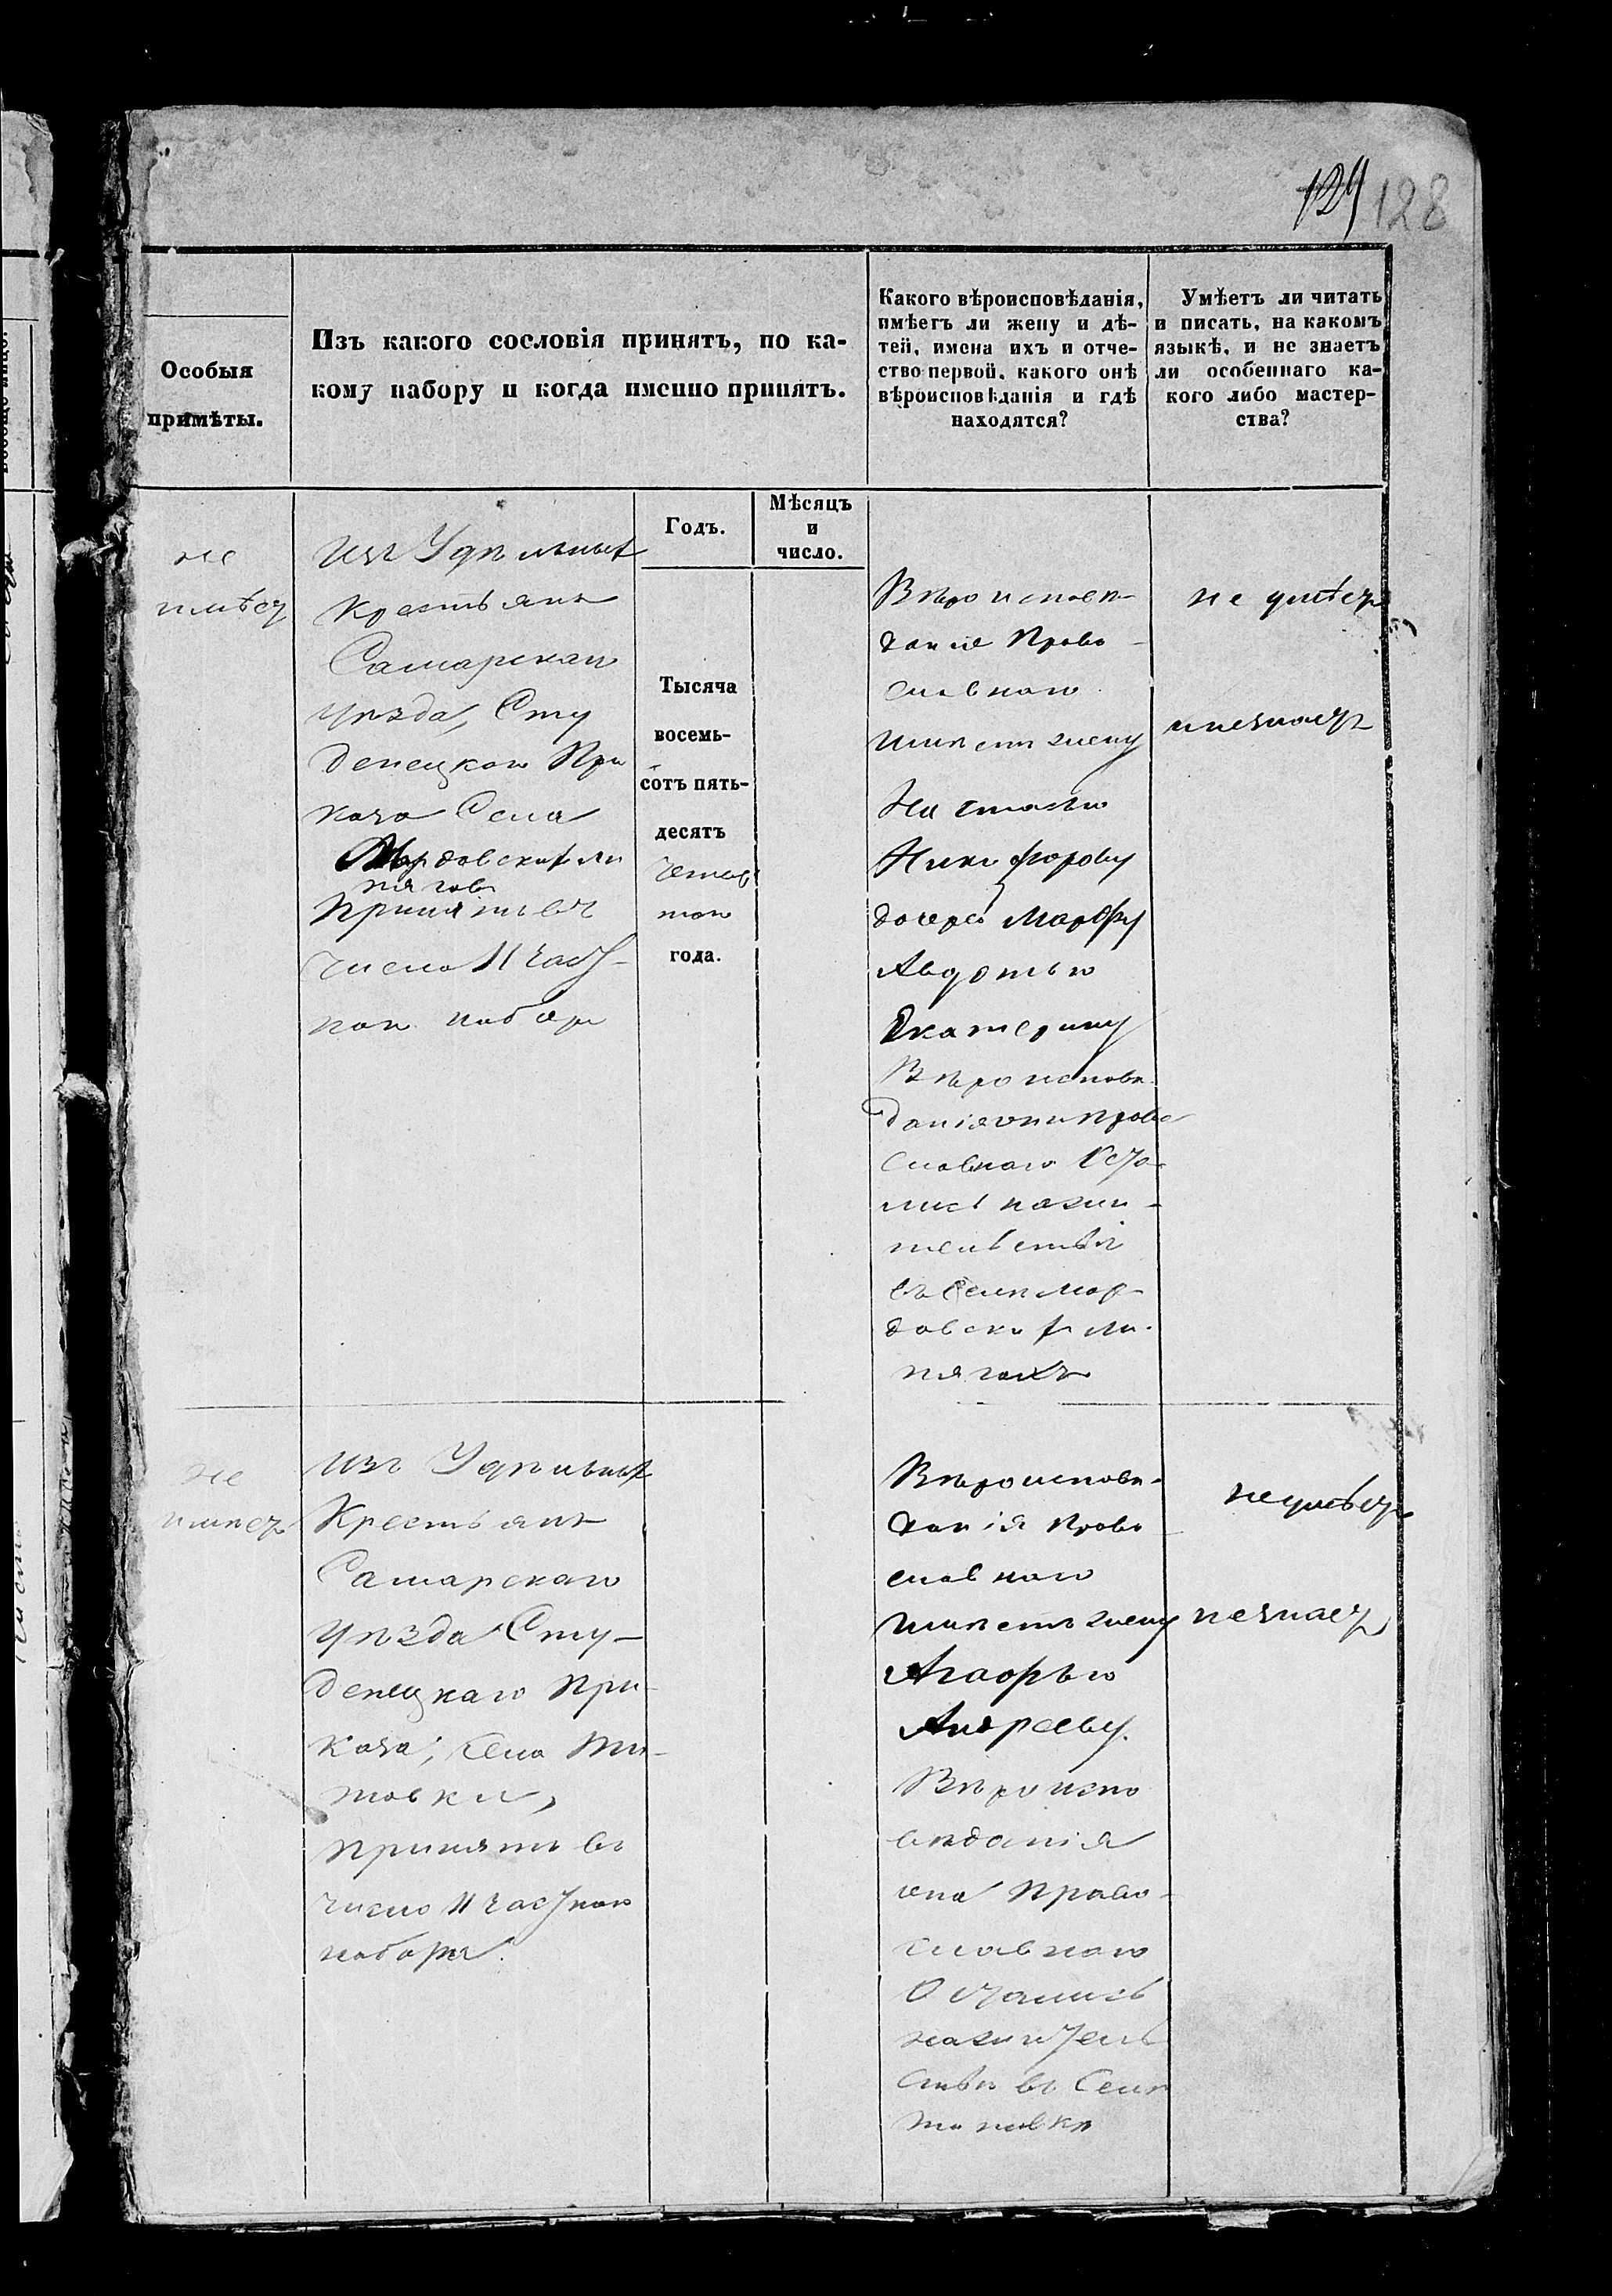 129 128
Особыя
примѣты.
Изъ какого сословія принятъ, по ка-
кому набору и когда именно принятъ.
Какого вѣроисповѣданія,
имѣетъ ли жену и дѣ-
тей, имена ихъ и отче-
ство первой, какого онѣ
вѣроисповѣданія и гдѣ
находятся?
Умѣетъ ли читать
и писать, на какомъ
языкѣ, и не знаетъ
ли особеннаго ка-
кого либо мастер-
ства?
Годъ.
Мѣсяцъ
и
число.
не
имѣет
изъ Удѣльных
Крестьянъ
Самарскаго
уѣзда, Сту
денецкаго При
каза Села
Мордовских ли
пягов
принятъ въ
число 11 част-
наго набора
Тысяча
восемь-
сотъ пять-
десятъ
четвер
таго
года.
Вѣроисповѣ-
данія Право
славнаго
имѣетъ жену
Настасью
Никифорову
дочерей Марфу
Авдотью
Екатерину
Вѣроисповѣ-
данія они Право
славнаго Оста-
лись на жи-
тельствѣ
въ Селѣ Мор-
довских ли-
пягахъ
не умѣетъ
и незнаетъ
не
имѣет
изъ Удѣльных
Крестьянъ
Самарскаго
уѣзда Сту-
денецкаго При-
каза, Села Ти-
товки,
принятъ въ
число 11 частнаго
набора.
Вѣроисповѣ-
данія Право
славнаго
имѣетъ жену
Агафью
Андрееву.
Вѣроиспо
вѣданія
она Право-
славнаго
Осталась
на житель
ствѣ въ Селѣ
Титовкѣ
не умѣет
незнает